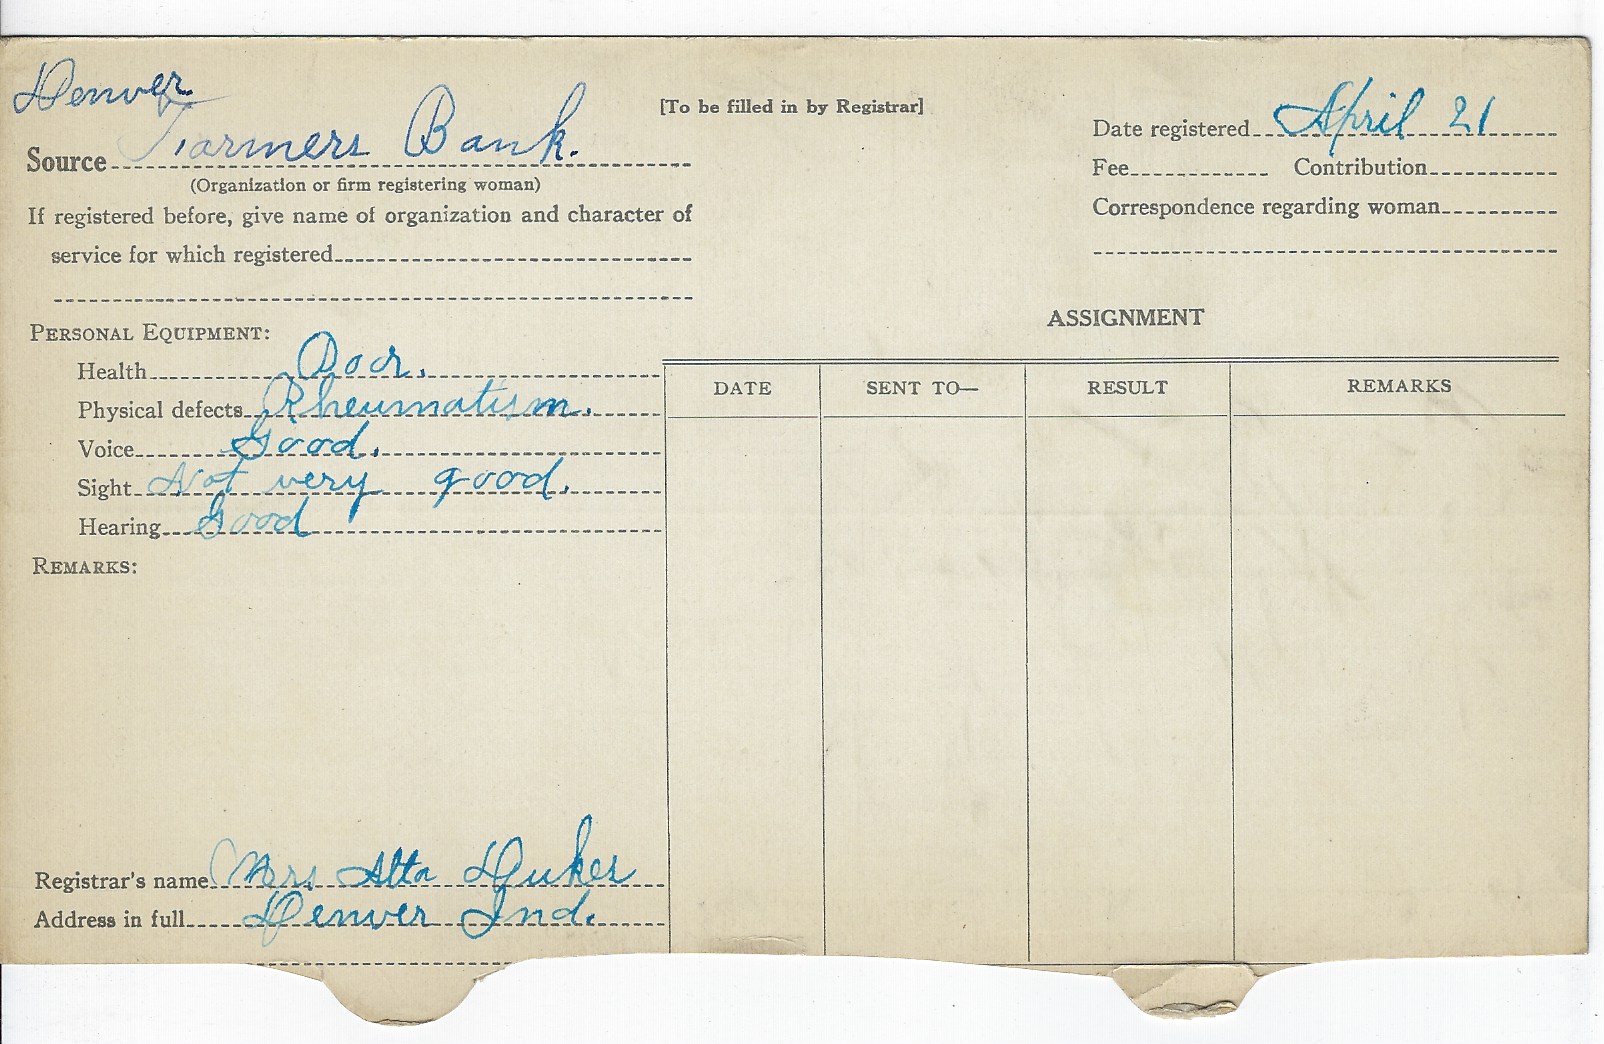 Denver
[To be filled in by Registrar]
Source Farmers Bank.
(Organization or firm registering woman)
If registered before, give name of organization and character of
service for which registered
Date registered April 21
Fee Contribution
Correspondence regarding woman
PERSONAL EQUIPMENT:
Health Poor.
Physical defects Rheumatism.
Voice Good.
Sight Not very good.
Hearing Good
REMARKS:
ASSIGNMENT
DATE SENT TO— RESULT REMARKS
Registrar's name Mrs Alta Duker
Address in full Denver Ind.